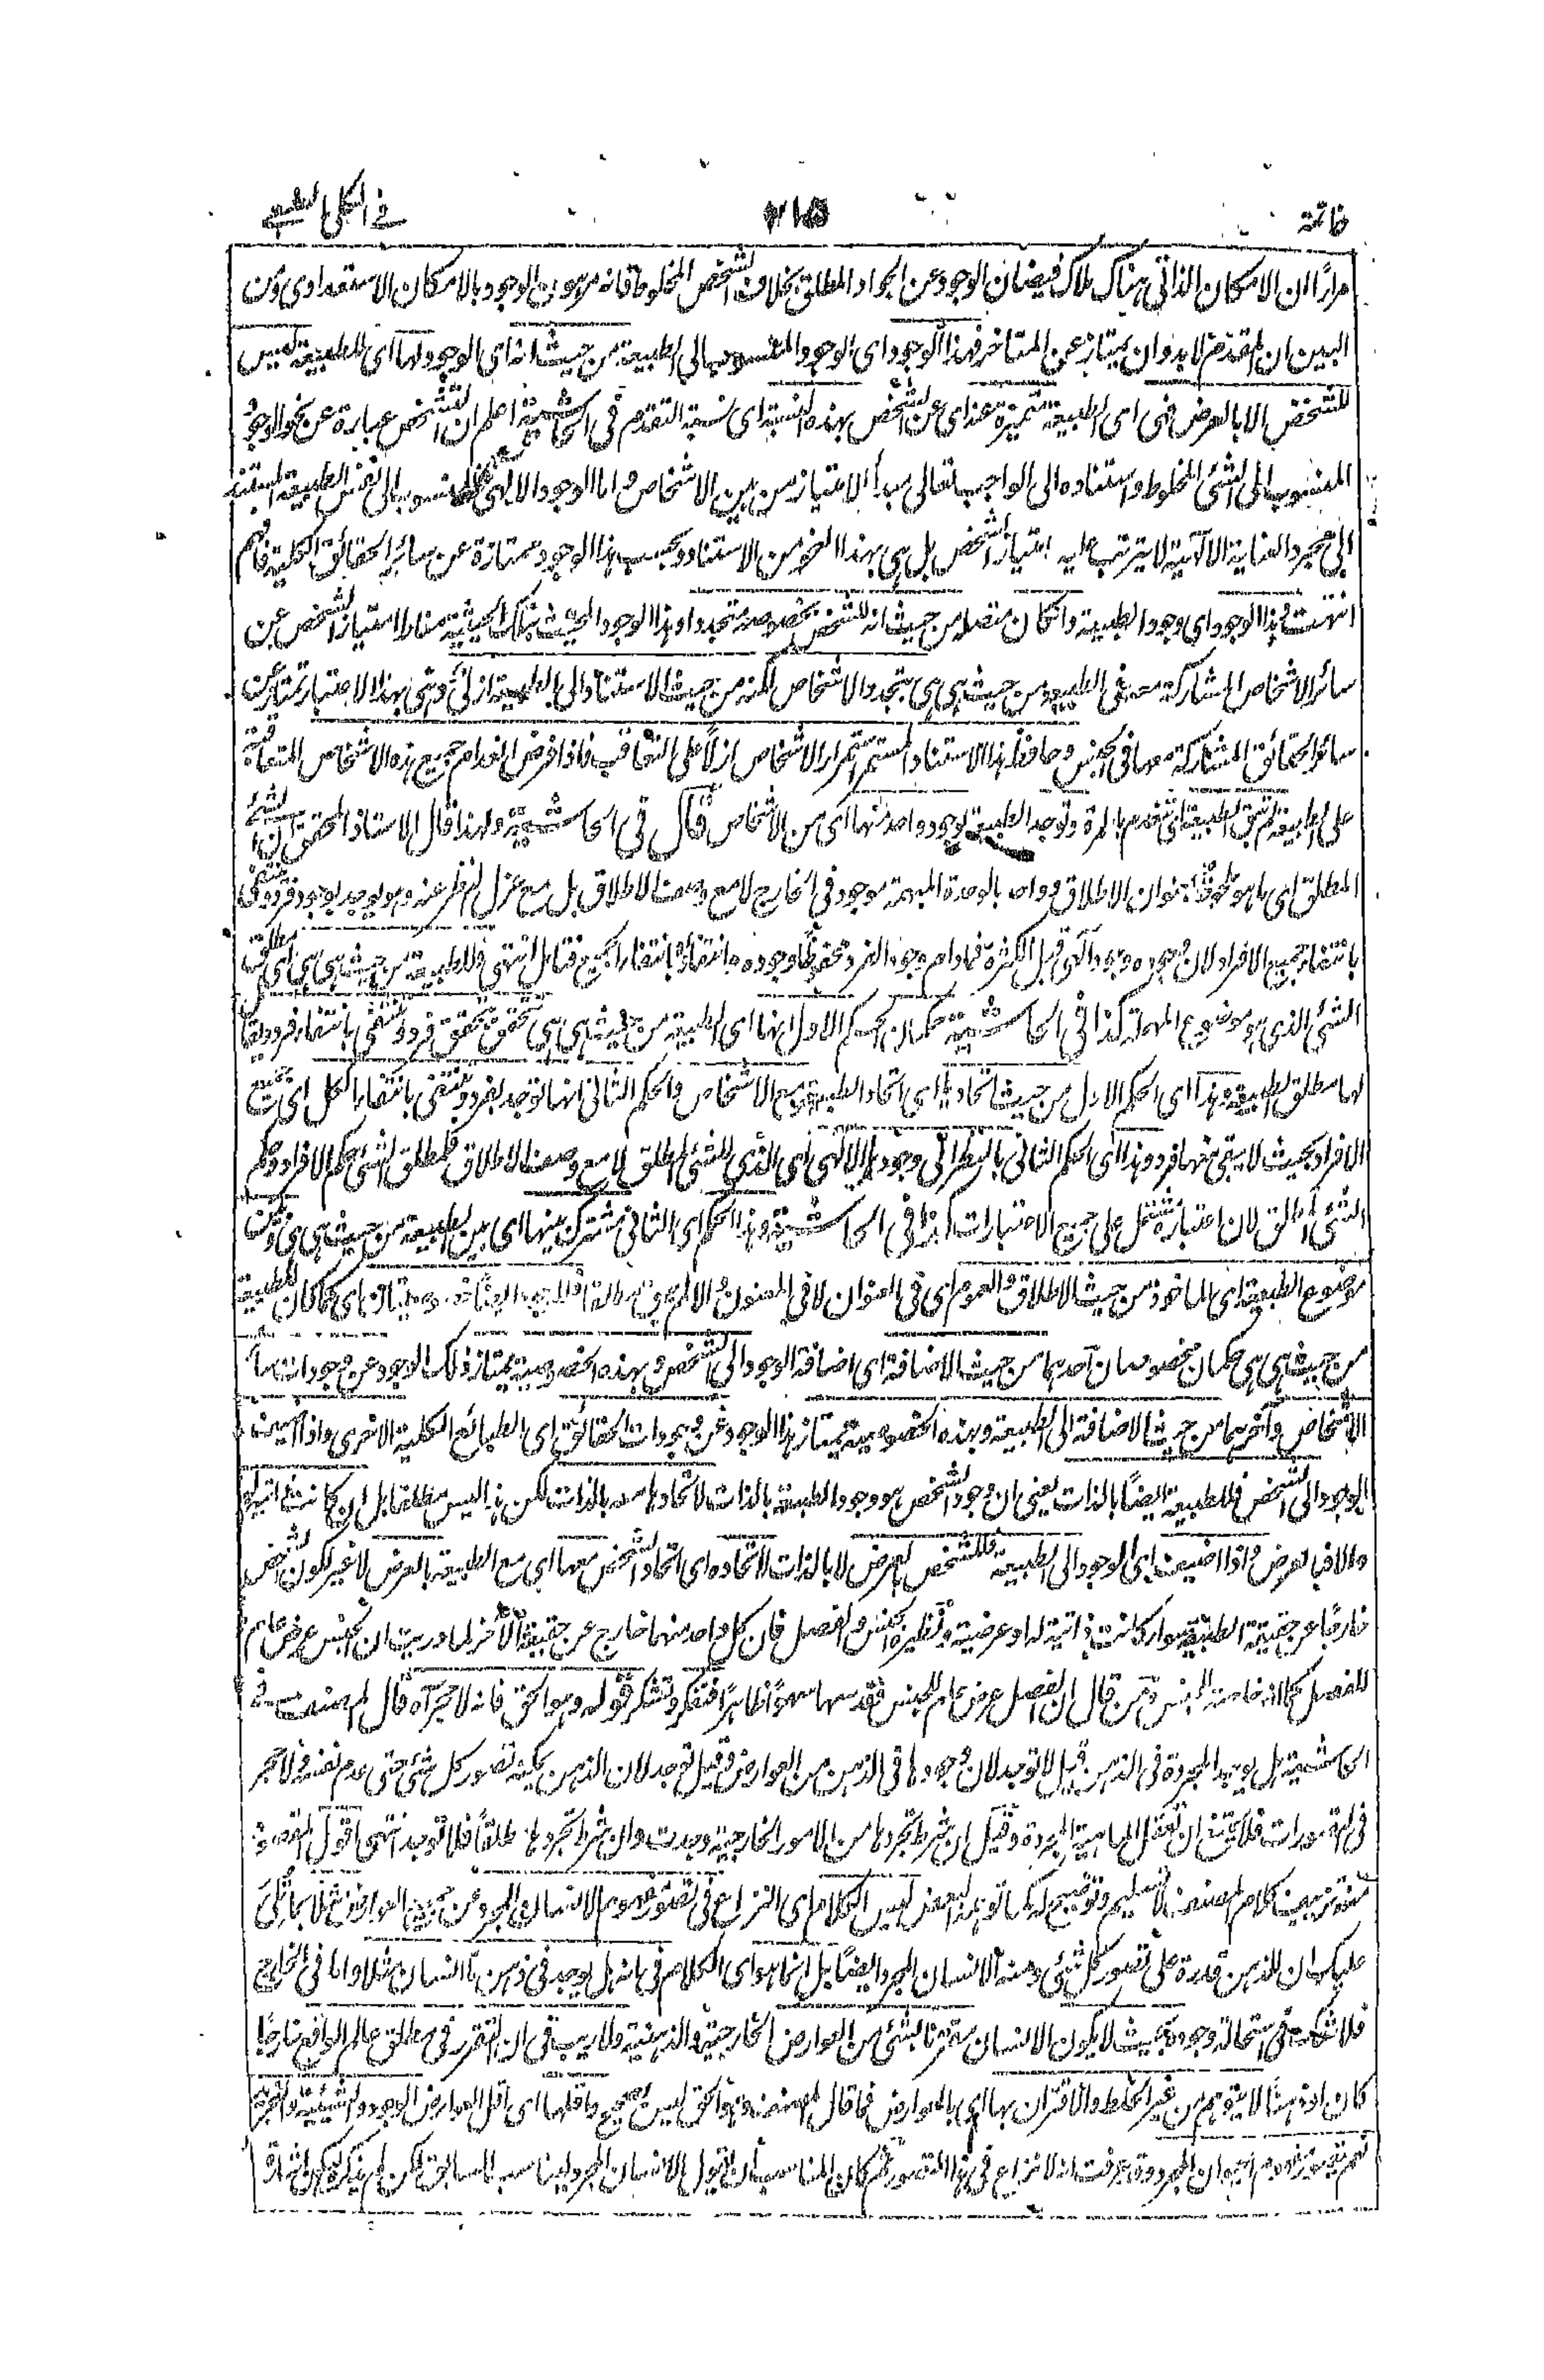 خاتمة ٢١٥ في الكلي الطبيعي
مرارًا ان الامكان الذاتي هناك ملاك فيضان الوجود عن الجواد المطلق بخلاف الشخص المخلوط فانه مرهون الوجود بالامكان الاستعدادى ومن
البين ان المقدم لا بد وان يمتاز عن المتاخر فهذا الوجود اى الوجود المنسوب الى الطبيعة من حيث انه اى الوجود لها اى للطبيعة ليس
للشخص الا بالعرض فهى اى الطبيعة متميزة عنه اى عن الشخص بهذه النسبة اى نسبة التقدم في الحاشية اعلم ان التشخص عبارة عن نحو الوجود
المنسوب الى الشئ المخلوط واستناده الى الواجب تعالى مبدأ الامتياز من بين الاشخاص واما الوجود الالهى المنسوب الى نفس الطبيعة المستند
الى مجرد العناية الالهية لا يترتب عليه امتياز الشخص بل هى بهذا النحو من الاستناد وبحسب هذا الوجود ممتازة عن سائر الحقائق الكلية فافهم
انتهت وهذا الوجود اى وجود الطبيعة وان كان متصلا من حيث انه للشخص بخصوصه متجددا وهذا الوجود المحيث بتلك الحيثية مناط لامتياز الشخص عن
سائر الاشخاص المشاركة معه في الطبيعة من حيث هى هى بتجدد الاشخاص لكنه من حيث الاستناد الى الطبيعة ازلى وهى بهذا الاعتبار تمتاز عن
سائر الحقائق المشاركة معها في الجنس وحافظ هذا الاستناد المستمر استمرار الاشخاص ازلاً على التعاقب فاذا فرض انعدام جميع هذه الاشخاص المتعاقبة
على الطبيعة لم تبق الطبيعة اى تنعدم بالمرة وتوجد الطبيعة بوجود واحد منها اى من الاشخاص قال في الحاشية ولهذا قال الاستاذ المحقق ان الشئ
المطلق اى ما هو ملحوظ بعنوان الاطلاق وواحد بالوحدة المبهمة موجود في الخارج لا مع وصف الاطلاق بل مع عزل النظر عنه وهو يوجد بوجود فرد وينتفى
بانتفاء جميع الافراد لان وجوده وجود آلهى قبل الكثرة فما دام وجود الفرد محفوظًا وجوده وانتفاؤه بانتفاء الجميع فتأمل انتهى فللطبيعة من حيث هى هى اى مطلق
الشئ الذى هو موضوع المهملة كذا في الحاشية حكمان الحكم الاول انها اى الطبيعة من حيث هى هى تتحقق بتحقق فرد وتنتفى بانتفاء فرد ويقال
لها مطلق الطبيعة وهذا اى الحكم الاول من حيث اتحادها اى اتحاد الطبيعة مع الاشخاص والحكم الثاني انها توجد بفرد وتنتفى بانتفاء الكل اى جميع
الافراد بحيث لا يبقى منها فرد وهذا اى الحكم الثاني بالنظر الى وجودها الالهى اى الذى للشئ المطلق لا مع وصف الاطلاق فلمطلق الشئ حكم الافراد وحكم
الشئ المطلق لان اعتباره يشتمل على جميع الاعتبارات كذا في الحاشية وهذا الحكم اى الثاني مشترك بينها اى بين الطبيعة من حيث هى هى وبين
موضوع الطبيعة اى الماخوذ من حيث الاطلاق والعموم اى في العنوان لا في المعنون والا لم يبق اى كما كان للطبيعة
من حيث هى هى حكمان مخصوصان احدهما من حيث الاضافة اى اضافة الوجود الى الشخص وبهذه الخصوصية يمتاز ذلك الوجود عن وجودات سائر
الاشخاص وآخرهما من حيث الاضافة الى الطبيعة وبهذه الخصوصية يمتاز هذا الوجود عن وجودات الحقائق اى الطبائع الكلية الاخرى واذا اضيف
الوجود الى الشخص فللطبيعة ايضًا بالذات يعنى ان وجود الشخص هو وجود الطبيعة بالذات لاتحادها معه بالذات لكن هذا ليس مطلقا بل ان كانت ذاتية له
والا فبالعرض واذا اضيف اى الوجود الى الطبيعة فللشخص بالعرض لا بالذات لاتحاده اى اتحاد الشخص معها اى مع الطبيعة بالعرض لا غير لكون الشخص
خارجًا عن حقيقة الطبيعة سواء كانت ذاتية له او عرضية ونظيره الجنس والفصل فان كل واحد منهما خارج عن حقيقة الآخر لما دريت ان الجنس عرض عام
للفصل كما انه خاصة الجنس ومن قال ان الفصل عرض عام للجنس فقد سها سهوًا ظاهرًا فتفكر وتشكر قوله وهو الحق فانه لا حجر آه قال المصنف في
الحاشية هل يوجد المجردة في الذهن قيل لا توجد لان وجودها في الذهن من العوارض وقيل توجد لان الذهن يمكنه تصور كل شئ حتى عدم نفسه فلا حجر
في التصورات فلا يمتنع ان تعقل الماهية المجردة وقيل ان شرط تجردها من الامور الخارجية وجدت وان شرط تجردها مطلقًا فلا توجد انتهى اقول المقصود
منه تزيين كلام المصنف لا تسليم وتوضيح له كما توهم البعض ليس الكلام اى النزاع في تصور مفهوم الانسان المجرد عن جميع العوارض مثلا بما تلى
عليك ان للذهن قدرة على تصور كل شئ ومنه الانسان المجرد ايضًا بل انما هو اى الكلام في انه هل يوجد في ذهن ما انسان مثلا واما في الخارج
فلا شك في استحالة وجوده بحيث لا يكون الانسان مقترنا بشئ من العوارض الخارجية والذهنية ولا ريب في ان التقرر في مطلق عالم الواقع خارجًا
كان او ذهنًا لا يتوهم من غير الخلط والاقتران بها اى بالعوارض فما قال المصنف وهو الحق ليس بصحيح واقلها اى اقل العوارض الوجود والشيئية والتجرد
نعم يتصور مفهوم الحيوان المجرد وقد عرفت انه لا نزاع في هذا التصور نعم كان المناسب ان يقول الانسان المجرد ليناسب السابق لكن لم يذكره لكن اشارة